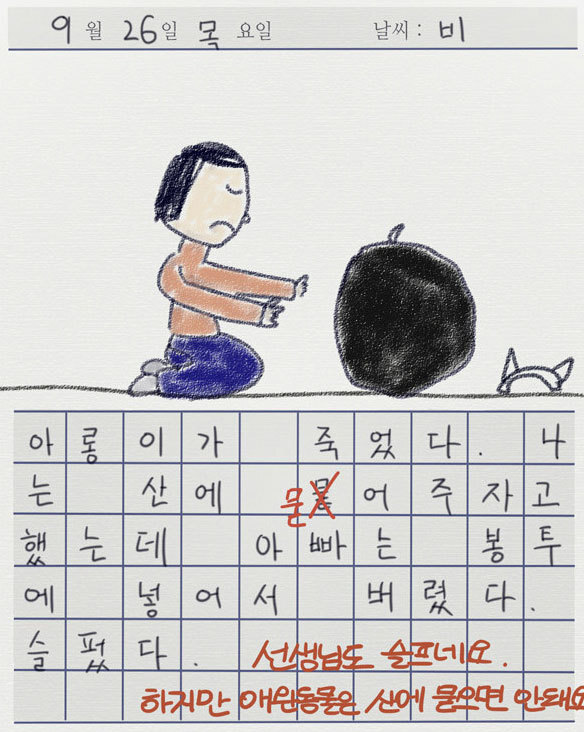 9월 26일 목요일 날씨 : 비
아롱이가 죽었다. 나
는 산에 묻어 주자고
했는데 아빠는 봉투
에 넣어서 버렸다.
슬펐다. 선생님도 슬프네요.
하지만 애완동물은 산에 묻으면 안돼요